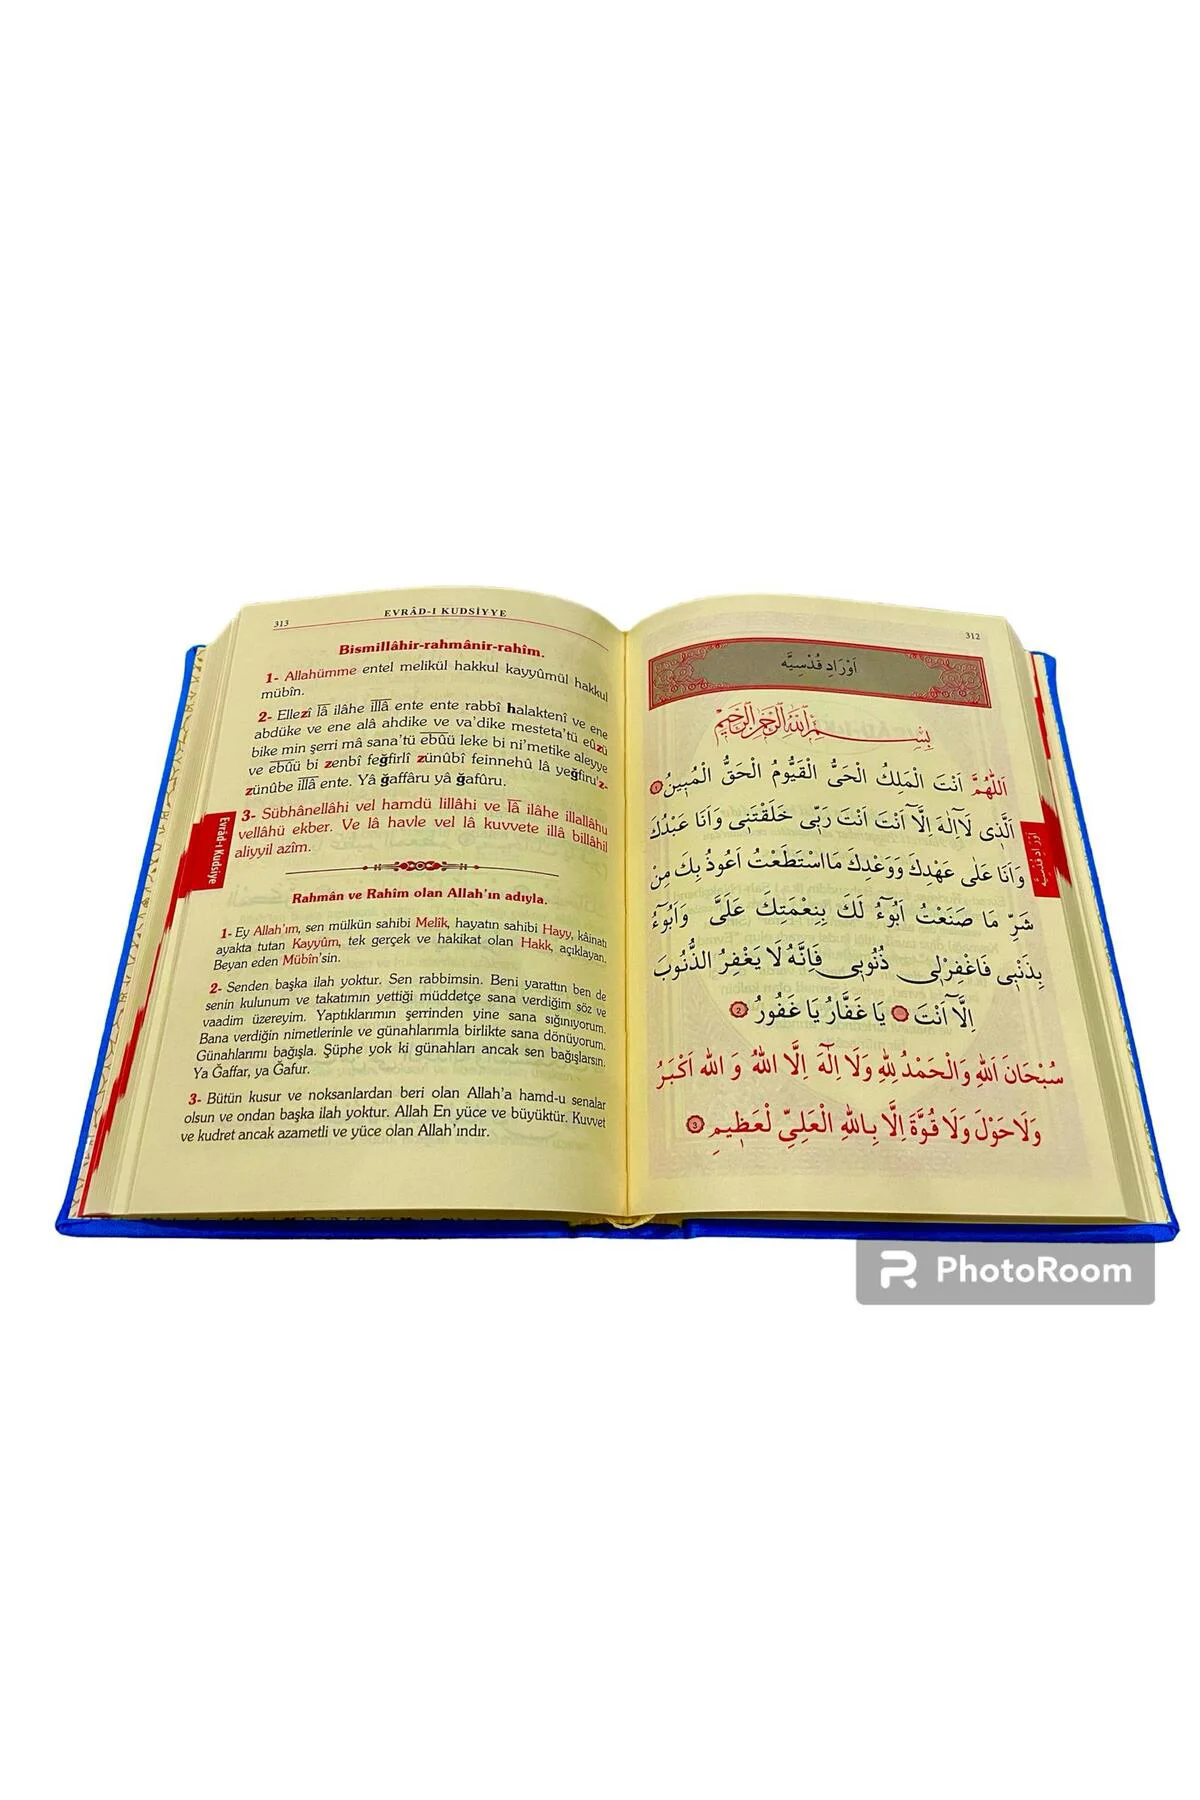 313
EVRÂD-I KUDSİYYE
Bismillâhir-rahmânir-rahîm.
1- Allahümme entel melikül hakkul kayyûmül hakkul
mübîn.
2- Ellezî lâ ilâhe illâ ente ente rabbî halaktenî ve ene
abdüke ve ene alâ ahdike ve va'dike mesteta'tü eûzü
bike min şerri mâ sana'tü ebûü leke bi ni'metike aleyye
ve ebûü bi zenbî feğfirlî zünûbî feinnehû lâ yeğfiru'z-
zünûbe illâ ente. Yâ ğaffâru yâ ğafûru.
3- Sübhânellâhi vel hamdü lillâhi ve lâ ilâhe illallâhu
vellâhü ekber. Ve lâ havle vel lâ kuvvete illâ billâhil
aliyyil azîm.
Evrâd-ı Kudsiye
Rahmân ve Rahîm olan Allah'ın adıyla.
1- Ey Allah'ım, sen mülkün sahibi Melîk, hayatın sahibi Hayy, kâinatı
ayakta tutan Kayyûm, tek gerçek ve hakikat olan Hakk, açıklayan,
Beyan eden Mübîn'sin.
2- Senden başka ilah yoktur. Sen rabbimsin. Beni yarattın ben de
senin kulunum ve takatımın yettiği müddetçe sana verdiğim söz ve
vaadim üzereyim. Yaptıklarımın şerrinden yine sana sığınıyorum.
Bana verdiğin nimetlerinle ve günahlarımla birlikte sana dönüyorum.
Günahlarımı bağışla. Şüphe yok ki günahları ancak sen bağışlarsın.
Ya Ğaffar, ya Gafur.
3- Bütün kusur ve noksanlardan beri olan Allah'a hamd-u senalar
olsun ve ondan başka ilah yoktur. Allah En yüce ve büyüktür. Kuvvet
ve kudret ancak azametli ve yüce olan Allah'ındır.
312
اَوْرَادِ قُدْسِيَّه
بِسْمِ اللهِ الرَّحْمٰنِ الرَّحِيمِ
اَللّٰهُمَّ اَنْتَ الْمَلِكُ الْحَىُّ الْقَيُّومُ الْحَقُّ الْمُبِينُ ١
اَلَّذِى لَااِلٰهَ اِلَّا اَنْتَ اَنْتَ رَبِّى خَلَقْتَنِى وَاَنَا عَبْدُكَ
وَاَنَا عَلٰى عَهْدِكَ وَوَعْدِكَ مَااسْتَطَعْتُ اَعُوذُ بِكَ مِنْ
شَرِّ مَا صَنَعْتُ اَبُوۤءُ لَكَ بِنِعْمَتِكَ عَلَىَّ وَاَبُوۤءُ
بِذَنْبِى فَاغْفِرْلِى ذُنُوبِى فَاِنَّهُ لَا يَغْفِرُ الذُّنُوبَ
اِلَّا اَنْتَ يَا غَفَّارُ يَا غَفُورُ ٢
سُبْحَانَ اللهِ وَالْحَمْدُ لِلهِ وَلَا اِلٰهَ اِلَّا اللهُ وَ اللهُ اَكْبَرُ
وَلَاحَوْلَ وَلَا قُوَّةَ اِلَّا بِاللهِ الْعَلِىِّ لْعَظِيمِ ٣
اَوْرَادِ قُدْسِيَّه
PhotoRoom